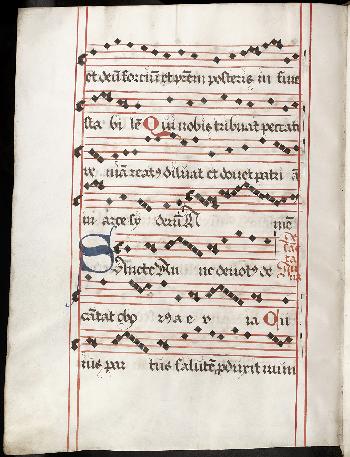 et deū forciū et prēm posteris in fine
sta bi lē Qui nobis tribuat peccati
ve niā reat9 diluat et donet patri ā
in arce sy derū A mē
Sancte An ne devot9 de
cātat cho r9 a e v ia Qui
ius par tus salutē pduxit mun